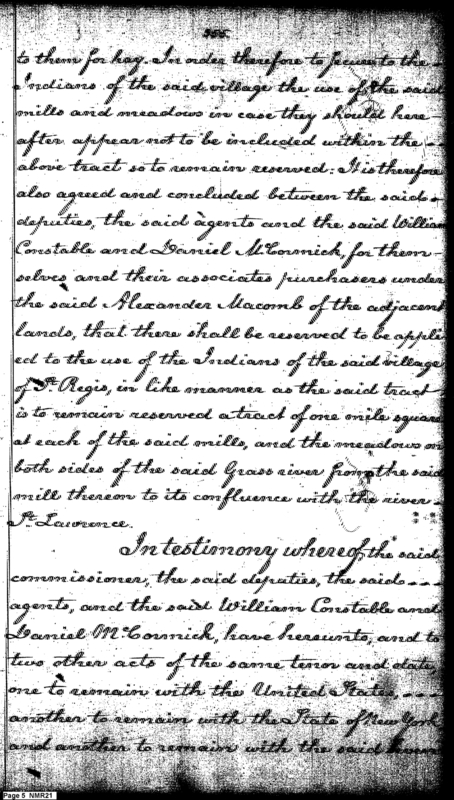 555.
to them for hay. In order therefore to secure to the
Indians of the said village the use of the said
mills and meadows in case they should here
after appear not to be included within the - -
above tract so to remain reserved: It is therefore
also agreed and concluded between the said -
deputies, the said agents and the said William
Constable and Daniel McCormick, for them-
selves and their associates purchasers under
the said Alexander Macomb of the adjacent
lands, that there shall be reserved to be appli
ed to the use of the Indians of the said village
of St. Regis, in like manner as the said tract
is to remain reserved a tract of one mile square
at each of the said mills, and the meadows on
both sides of the said Grass river from the said
mill thereon to its confluence with the river -
St. Lawrence.
In testimony whereof, the said
commissioner, the said deputies, the said - - -
agents, and the said William Constable and
Daniel McCormick, have hereunto, and to
two other acts of the same tenor and date,
one to remain with the United States, - - -
another to remain with the State of New York
and another to remain with the said Seven
Page 5 NMR21